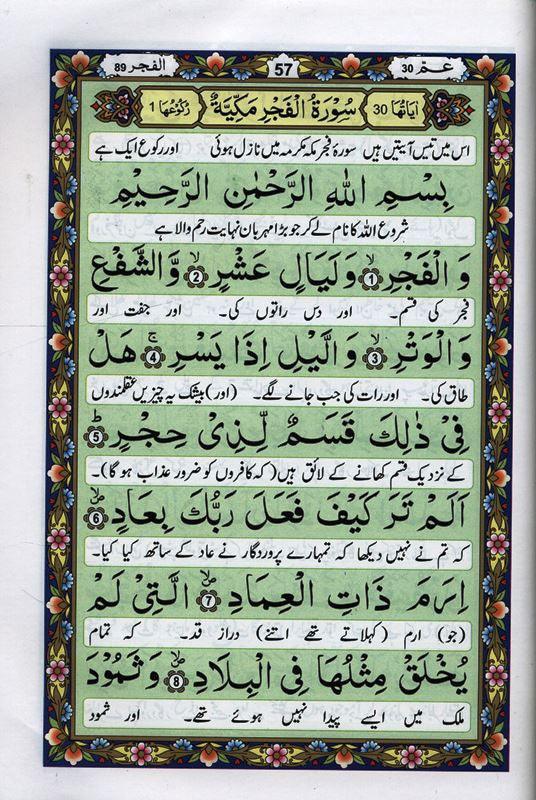 عـمّ 30 57 الفجر 89
اٰيَاتُهَا 30 سُوْرَةُ الْفَجْرِ مَكِّيَّةٌ رُكُوْعُهَا 1
اس میں تیس آیتیں ہیں سورۂ فجر مکہ مکرمہ میں نازل ہوئی اور رکوع ایک ہے
بِسْمِ اللّٰهِ الرَّحْمٰنِ الرَّحِيْمِ
شروع اللہ کا نام لے کر جو بڑا مہربان نہایت رحم والا ہے
وَ الْفَجْرِ ۙ1 وَ لَيَالٍ عَشْرٍ ۙ2 وَّ الشَّفْعِ
فجر کی قسم۔ اور دس راتوں کی۔ اور جفت اور
وَ الْوَتْرِ ۙ3 وَ الَّيْلِ اِذَا يَسْرِ ۚ4 هَلْ
طاق کی۔ اور رات کی جب جانے لگے۔ (اور) بیشک یہ چیزیں عقلمندوں
فِيْ ذٰلِكَ قَسَمٌ لِّذِيْ حِجْرٍ ؕ5
کے نزدیک قسم کھانے کے لائق ہیں (کہ کافروں کو ضرور عذاب ہو گا)۔
اَلَمْ تَرَ كَيْفَ فَعَلَ رَبُّكَ بِعَادٍ ۪ۙ6
کہ تم نے نہیں دیکھا کہ تمہارے پروردگار نے عاد کے ساتھ کیا کیا۔
اِرَمَ ذَاتِ الْعِمَادِ ۪ۙ7 الَّتِيْ لَمْ
(جو) ارم (کہلاتے تھے اتنے) دراز قد۔ کہ تمام
يُخْلَقْ مِثْلُهَا فِي الْبِلَادِ ۪ۙ8 وَ ثَمُوْدَ
ملک میں ایسے پیدا نہیں ہوئے تھے۔ اور ثمود